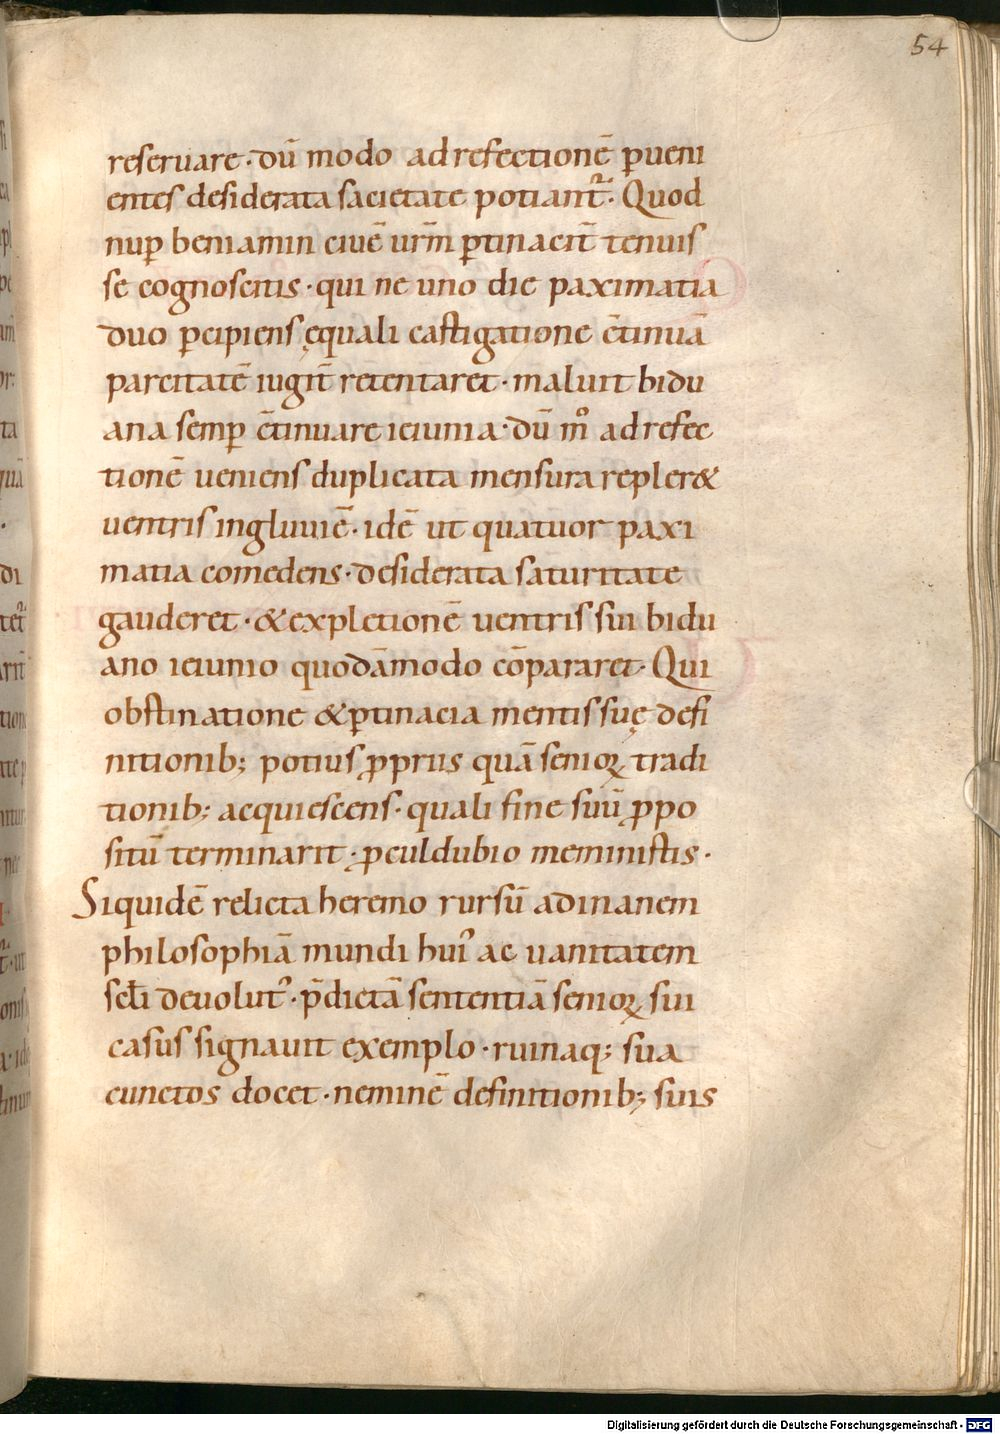 54
reseruare · dū modo ad refectionē ꝑueni
entes desiderata sacietate potiant᷑. Quod
nuꝑ beniamin ciuē urm̄ ꝑtinacit̄ tenuis
se cognoscitis · qui ne uno die paximatia
duo ꝑcipiens ęquali castigatione c̄tinuā
parcitatē iugit̄ retentaret · maluit bidu
ana semꝑ c̄tinuare ieiunia · dū m̊ ad refec
tionē ueniens duplicata mensura repler&
uentris ingluuiē · idē ut quatuor paxi
matia comedens · desiderata saturitate
gauderet · & expletionē uentris sui bidu
ano ieiunio quodāmodo cōpararet · Qui
obstinatione & ꝑtinacia mentis suę defi
nitionib; potius ꝓpriis quā senioꝝ tradi
tionib; acquiescens · quali fine suū ꝓpo
sitū terminarit · ꝓculdubio meministis ·
Siquidē relicta heremo rursū ad inanem
philosophiā mundi hui᾽ ac uanitatem
scl̄i deuolut᾽ · p̄dictā sententiā senioꝝ sui
casus signauit exemplo · ruinaq; sua
cunctos docet · neminē definitionib; suis
Digitalisierung gefördert durch die Deutsche Forschungsgemeinschaft - DFG